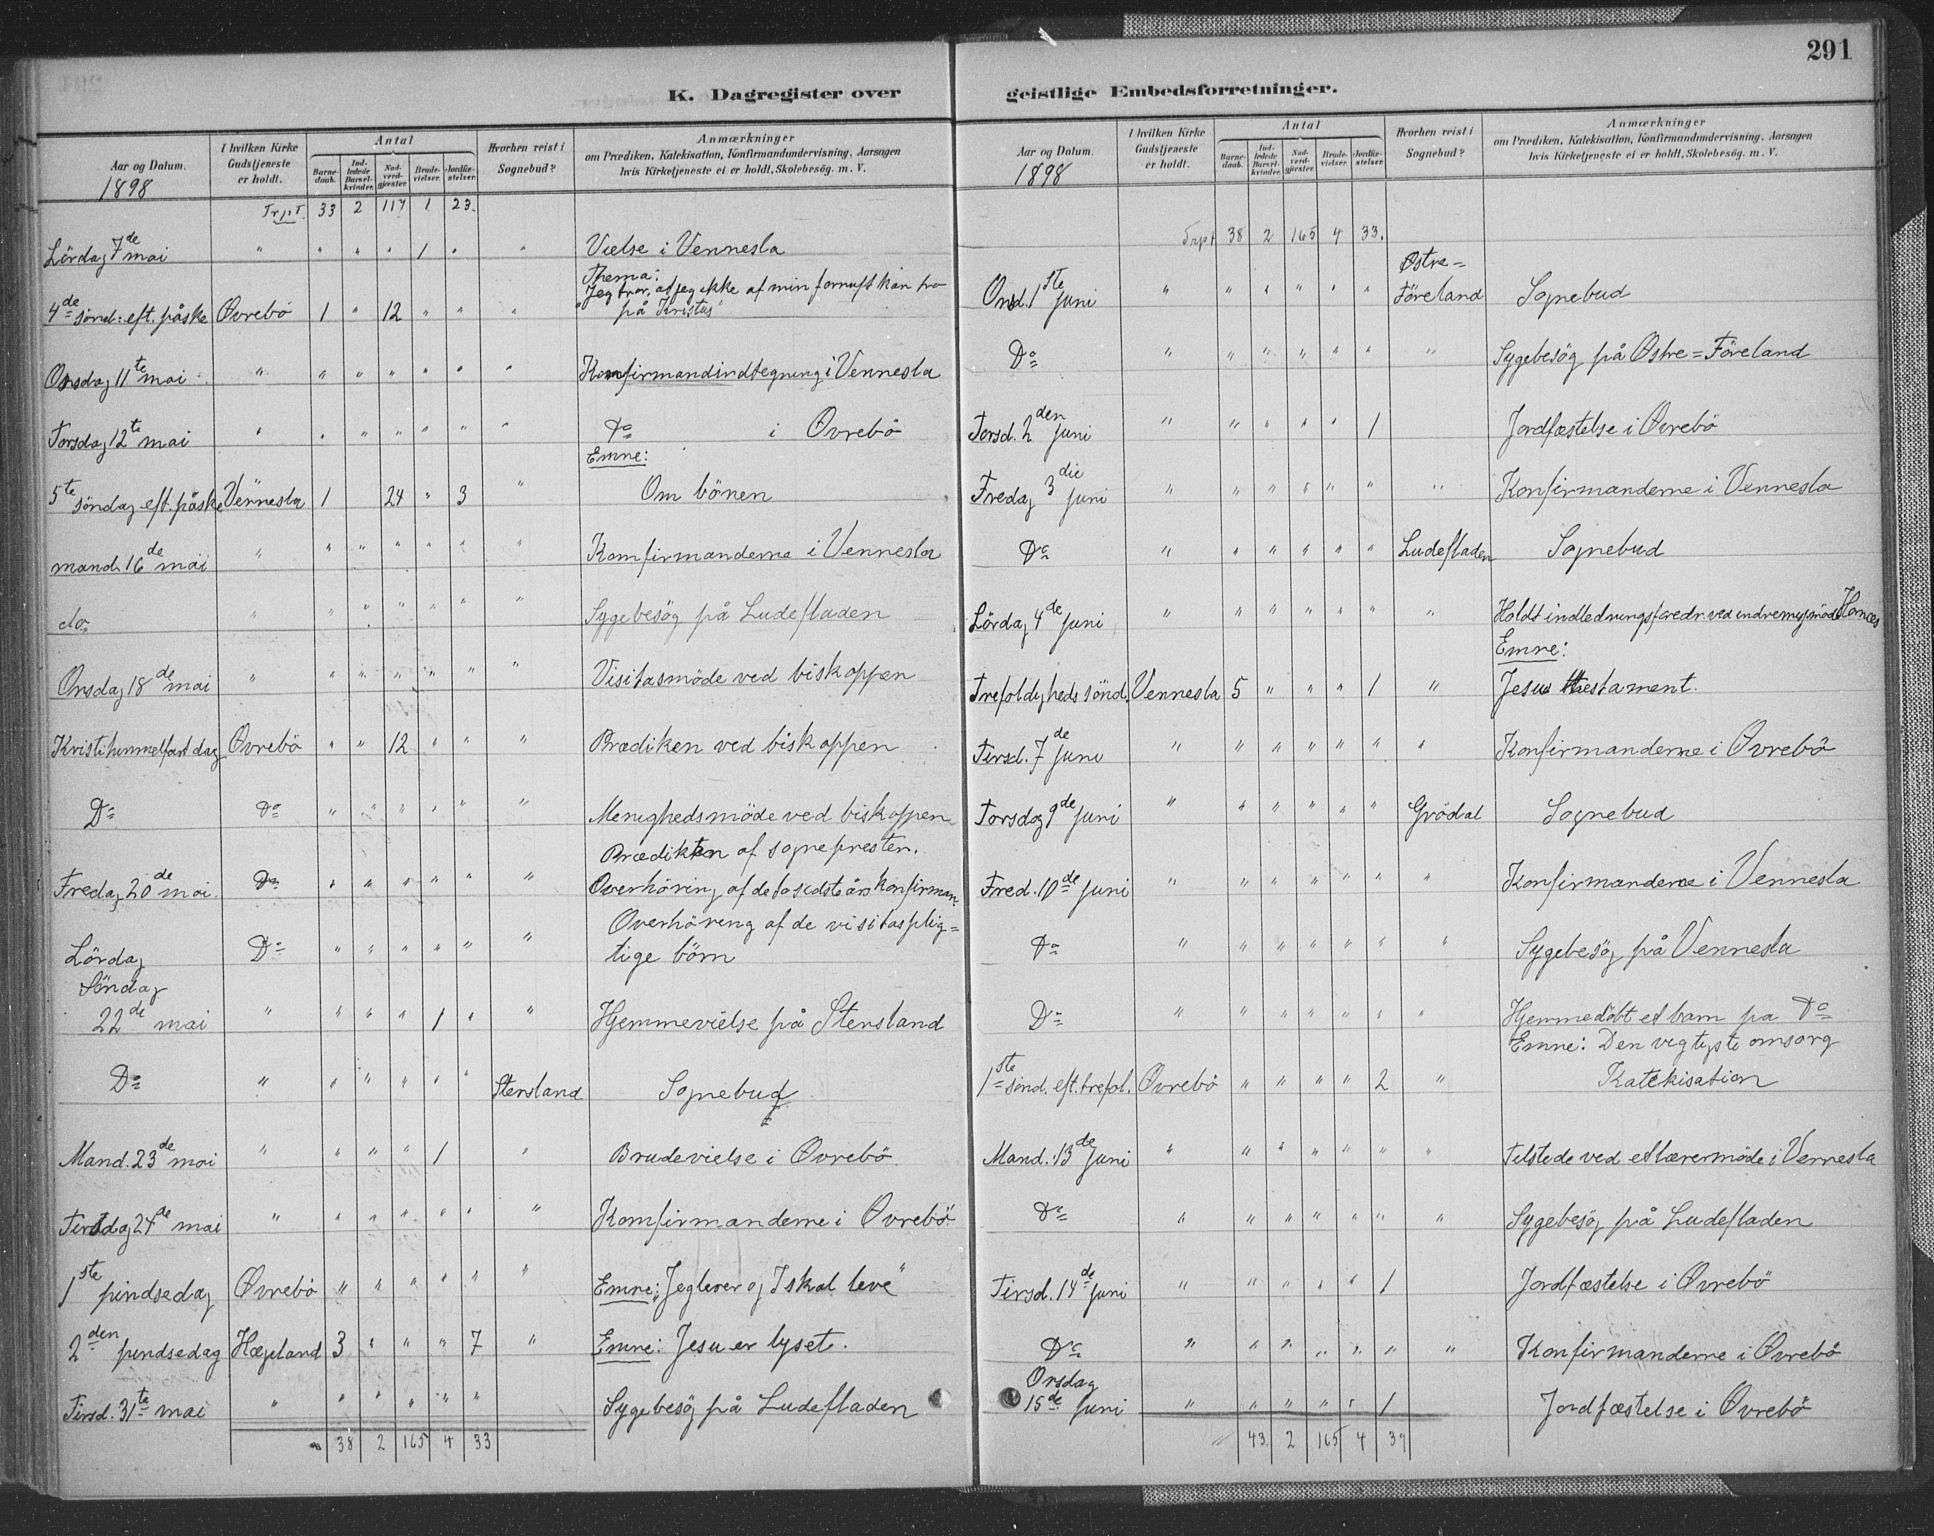 K. Dagregister over
Aar og Datum. | I hvilken Kirke Gudstjeneste er holdt. | Antal | Barnedaab. | Indledede Barselkvinder. | Nadverdgjæster. | Brudevielser. | Jordfæstelser. | Hvorhen reist i Sognebud? | Anmærkninger om Prædiken, Katekisation, Konfirmandundervisning, Aarsagen hvis Kirketjeneste ei er holdt, Skolebesøg. m. V.
1898
Trpt. 33 2 117 1 23.
Lördag 7de mai " " " " 1 " " Vielse i Vennesla
Thema:
"Jeg tror, at jeg ikke af min fornuft kan tro
4de sönd: eft. påske Øvrebö 1 " 12 " " " på Kristus"
Onsdag 11te mai " " " " " " " Konfirmandindtegning i Vennesla
Torsdag 12te mai " " " " " " " Do i Øvrebö
Emne:
5te söndag eft. påske Vennesla 1 24 " 3 " Om bönen
mand. 16de mai " " " " " " " Komfirmanderne i Vennesla
do " " " " " " " Sygebesög på Ludefladen
Onsdag 18de mai " " " " " " " Visitasmöde ved biskoppen
Kristi himmelfart dag Øvrebö " " 12 " " " Prædiken ved biskoppen
Do Do " " " " " " Menighedsmöde ved biskoppen
Prædiken af sognepresten.
Fredag 20de mai. Do " " " " " " Overhöring af de to sidste års konfirman.
Overhöreng af de visitasplig=
Lördag Do " " " " " " tige börn
Söndag
22de mai " " " " 1 " " Hjemmevielse på Stensland
Do " " " " " " Stensland Sognebud
Mand. 23de mai " " " " 1 " Brudevielse i Øvrebö
Tirsdag 24de mai " " " " " " " Komfirmanderne i Øvrebö
1ste pindsedag Øvrebö " " " " " " Emne: "Jeg lever og I skal leve"
2den pindsedag Hægeland 3 " " " 7 " Emne: Jesu er lyset.
Tirsd. 31te mai " " " " " " Sygebesög på Ludefladen
38 2 165 4 33
291
geistlige Embedsforretninger.
Aar og Datum. | I hvilken Kirke Gudstjeneste er holdt. | Antal | Barnedaab. | Indledede Barselkvinder. | Nadverdgjæster. | Brudevielser. | Jordfæstelser. | Hvorhen reist i Sognebud? | Anmærkninger om Prædiken, Katekisation, Konfirmandundervisning, Aarsagen hvis Kirketjeneste ei er holdt, Skolebesög. m. V.
1898
Trpt 38 2 165 4 33.
Østre=
Onsd. 1ste juni " " " " " " Föreland Sognebud
Do " " " " " " " Sygebesög på Østre=Föreland
Torsd. 2den juni " " " " " 1 Jordfæstelse i Øvrebö
Fredag 3die juni " " " " " " " Konfirmanderne i Vennesla
Do " " " " " " Ludefladen Sognebud
Lördag 4de juni " " " " " " " Holdt indledningsforedr. ved indremis.möde Homnes
Emne:
Trefoldigheds sönd. Vennesla 5 " " " 1 " Jesu testament.
Tirsd. 7de juni " " " " " " " Konfirmanderne i Øvrebö
Torsdag 9de juni " " " " " " Grödal Sognebud
Fred. 10de juni " " " " " " " Konfirmanderne i Vennesla
Do " " " " " " " Sygebesög på Vennesla
Do " " " " " " " Hjemmedöbt et barn pa Do
Emne: Den vigtigste omsorg
1ste sönd. eft. trefol. Øvrebö " " " " 2 " Katekisation
Mand. 13de juni " " " " " " " Tilstede ved et lærermöde i Vennesla
Do " " " " " " " Sygebesög på Ludefladen
Tirsd. 14de juni " " " " " 1 Jordfæstelse i Øvrebö
Do " " " " " " " Konfirmanderne i Øvrebö
Onsdag
15de juni " " " " " 1 Jordfæstelse i Øvrebö
43 2 165 4 39